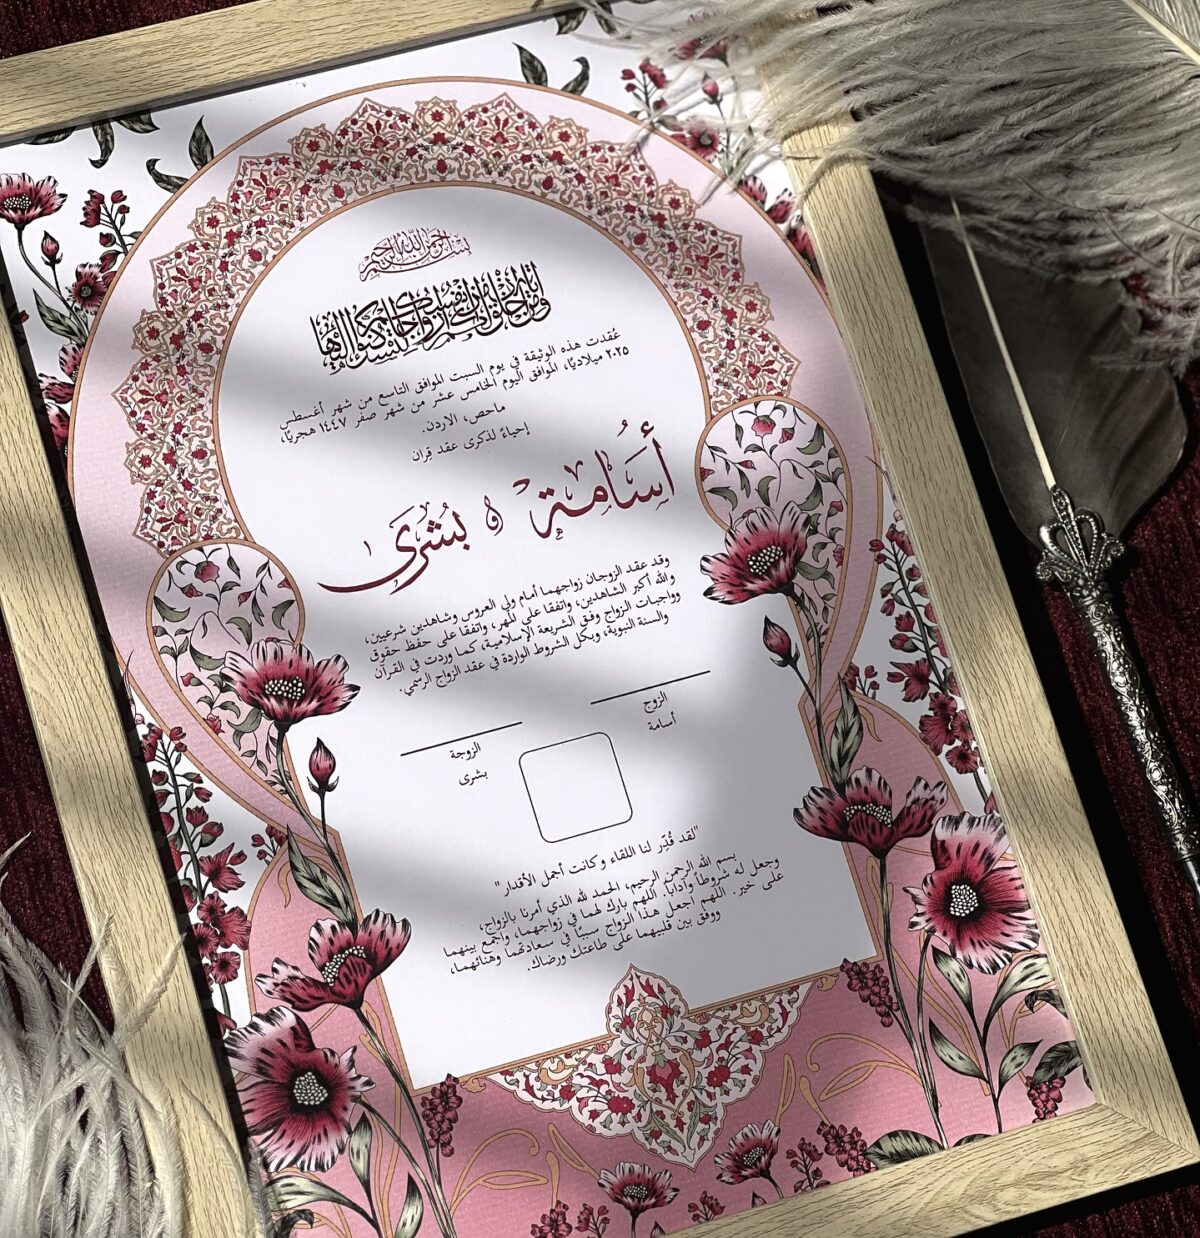 بسم الله الرحمن الرحيم
ومن آياته أن خلق لكم من أنفسكم أزواجا لتسكنوا إليها
عُقدت هذه الوثيقة في يوم السبت الموافق التاسع من شهر أغسطس
٢٠٢٥ ميلاديًا، الموافق اليوم الخامس عشر من شهر صفر ١٤٤٧ هجريًا،
ماحص، الاردن.
إحياءً لذكرى عقد قِران
أُسَامة و بُشرى
وقد عقد الزوجان زواجهما أمام ولي العروس وشاهدين شرعيين،
والله أكبر الشاهدين، واتفقا على المهر، واتفقا على حفظ حقوق
وواجبات الزواج وفق الشريعة الإسلامية، كما وردت في القرآن
والسنة النبوية، وبكل الشروط الواردة في عقد الزواج الرسمي.
الزوج
أسامة
الزوجة
بشرى
"لقد قُدِّر لنا اللقاء وكانت أجمل الأقدار"
بسم الله الرحمن الرحيم، الحمد لله الذي أمرنا بالزواج،
وجعل له شروطاً وآداباً. اللهم بارك لهما في زواجهما، واجمع بينهما
على خير. اللهم اجعل هذا الزواج سببًا في سعادتهما وهنائهما،
ووفق بين قلبيهما على طاعتك ورضاك.